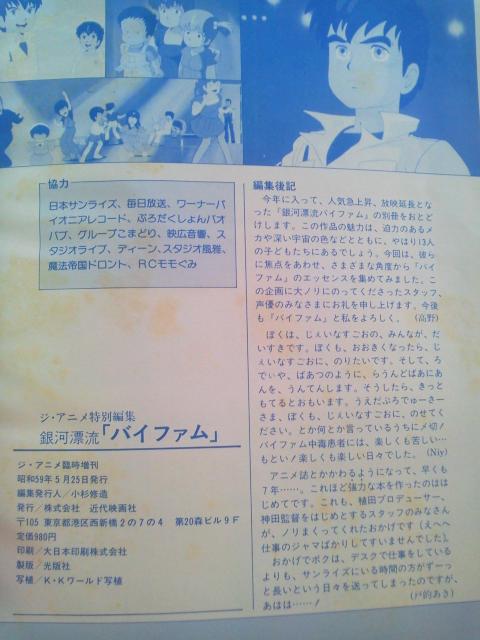 協力
日本サンライズ、毎日放送、ワーナーパ
イオニアレコード、ぷろだくしょんバオ
バブ、グループこまどり、映広音響、ス
タジオライブ、ディーン、スタジオ風雅、
魔法帝国ドロント、RCモモぐみ
ジ・アニメ特別編集
銀河漂流「バイファム」
ジ・アニメ臨時増刊
昭和59年5月25日発行
編集発行人/小杉修造
発行/株式会社 近代映画社
〒105 東京都港区西新橋2の7の4 第20森ビル9F
定価980円
印刷/大日本印刷株式会社
製版/光版社
写植/K・Kワールド写植
編集後記
今年に入って、人気急上昇、放映延長とな
った「銀河漂流バイファム」の別冊をおとど
けします。この作品の魅力は、迫力のあるメ
カや深い宇宙の色などとともに、やはり13人
の子どもたちにあるでしょう。今回は、彼ら
に焦点をあわせ、さまざまな角度から「バイ
ファム」のエッセンスを集めてみました。こ
の企画に大ノリにのってくださったスタッフ、
声優のみなさまにお礼を申し上げます。今後
も「バイファム」と私をよろしく。 (高野)
ぼくは、じぇいなすごおの、みんなが、だ
いすきです。ぼくも、おおきくなったら、じ
ぇいなすごおに、のりたいです。そして、ろ
でぃや、ばあつのように、らうんどばあにあ
んを、うんてんします。そうしたら、きっと
もてるとおもいます。うえだぷろでゅーさー
さま、ぼくも、じぇいなすごおに、のせてく
ださい。とか何とか言っているうちに〆切!
バイファム中毒患者には、楽しくも苦しい…
もといノ楽しくも楽しい日々でした。(Niy)
アニメ誌とかかわるようになって、早くも
7年……。これほど強力な本を作ったのはは
じめてです。これも、植田プロデューサー、
神田監督をはじめとするスタッフのみなさん
が、ノリまくってくれたおかげです(えへへ
仕事のジャマばかりしてすいませんでした)。
おかげでボクは、デスクで仕事をしている
よりも、サンライズにいる時間の方がずーっ
と長いという日々を送ってしまったのですが、
あはは……! (戸的あき)